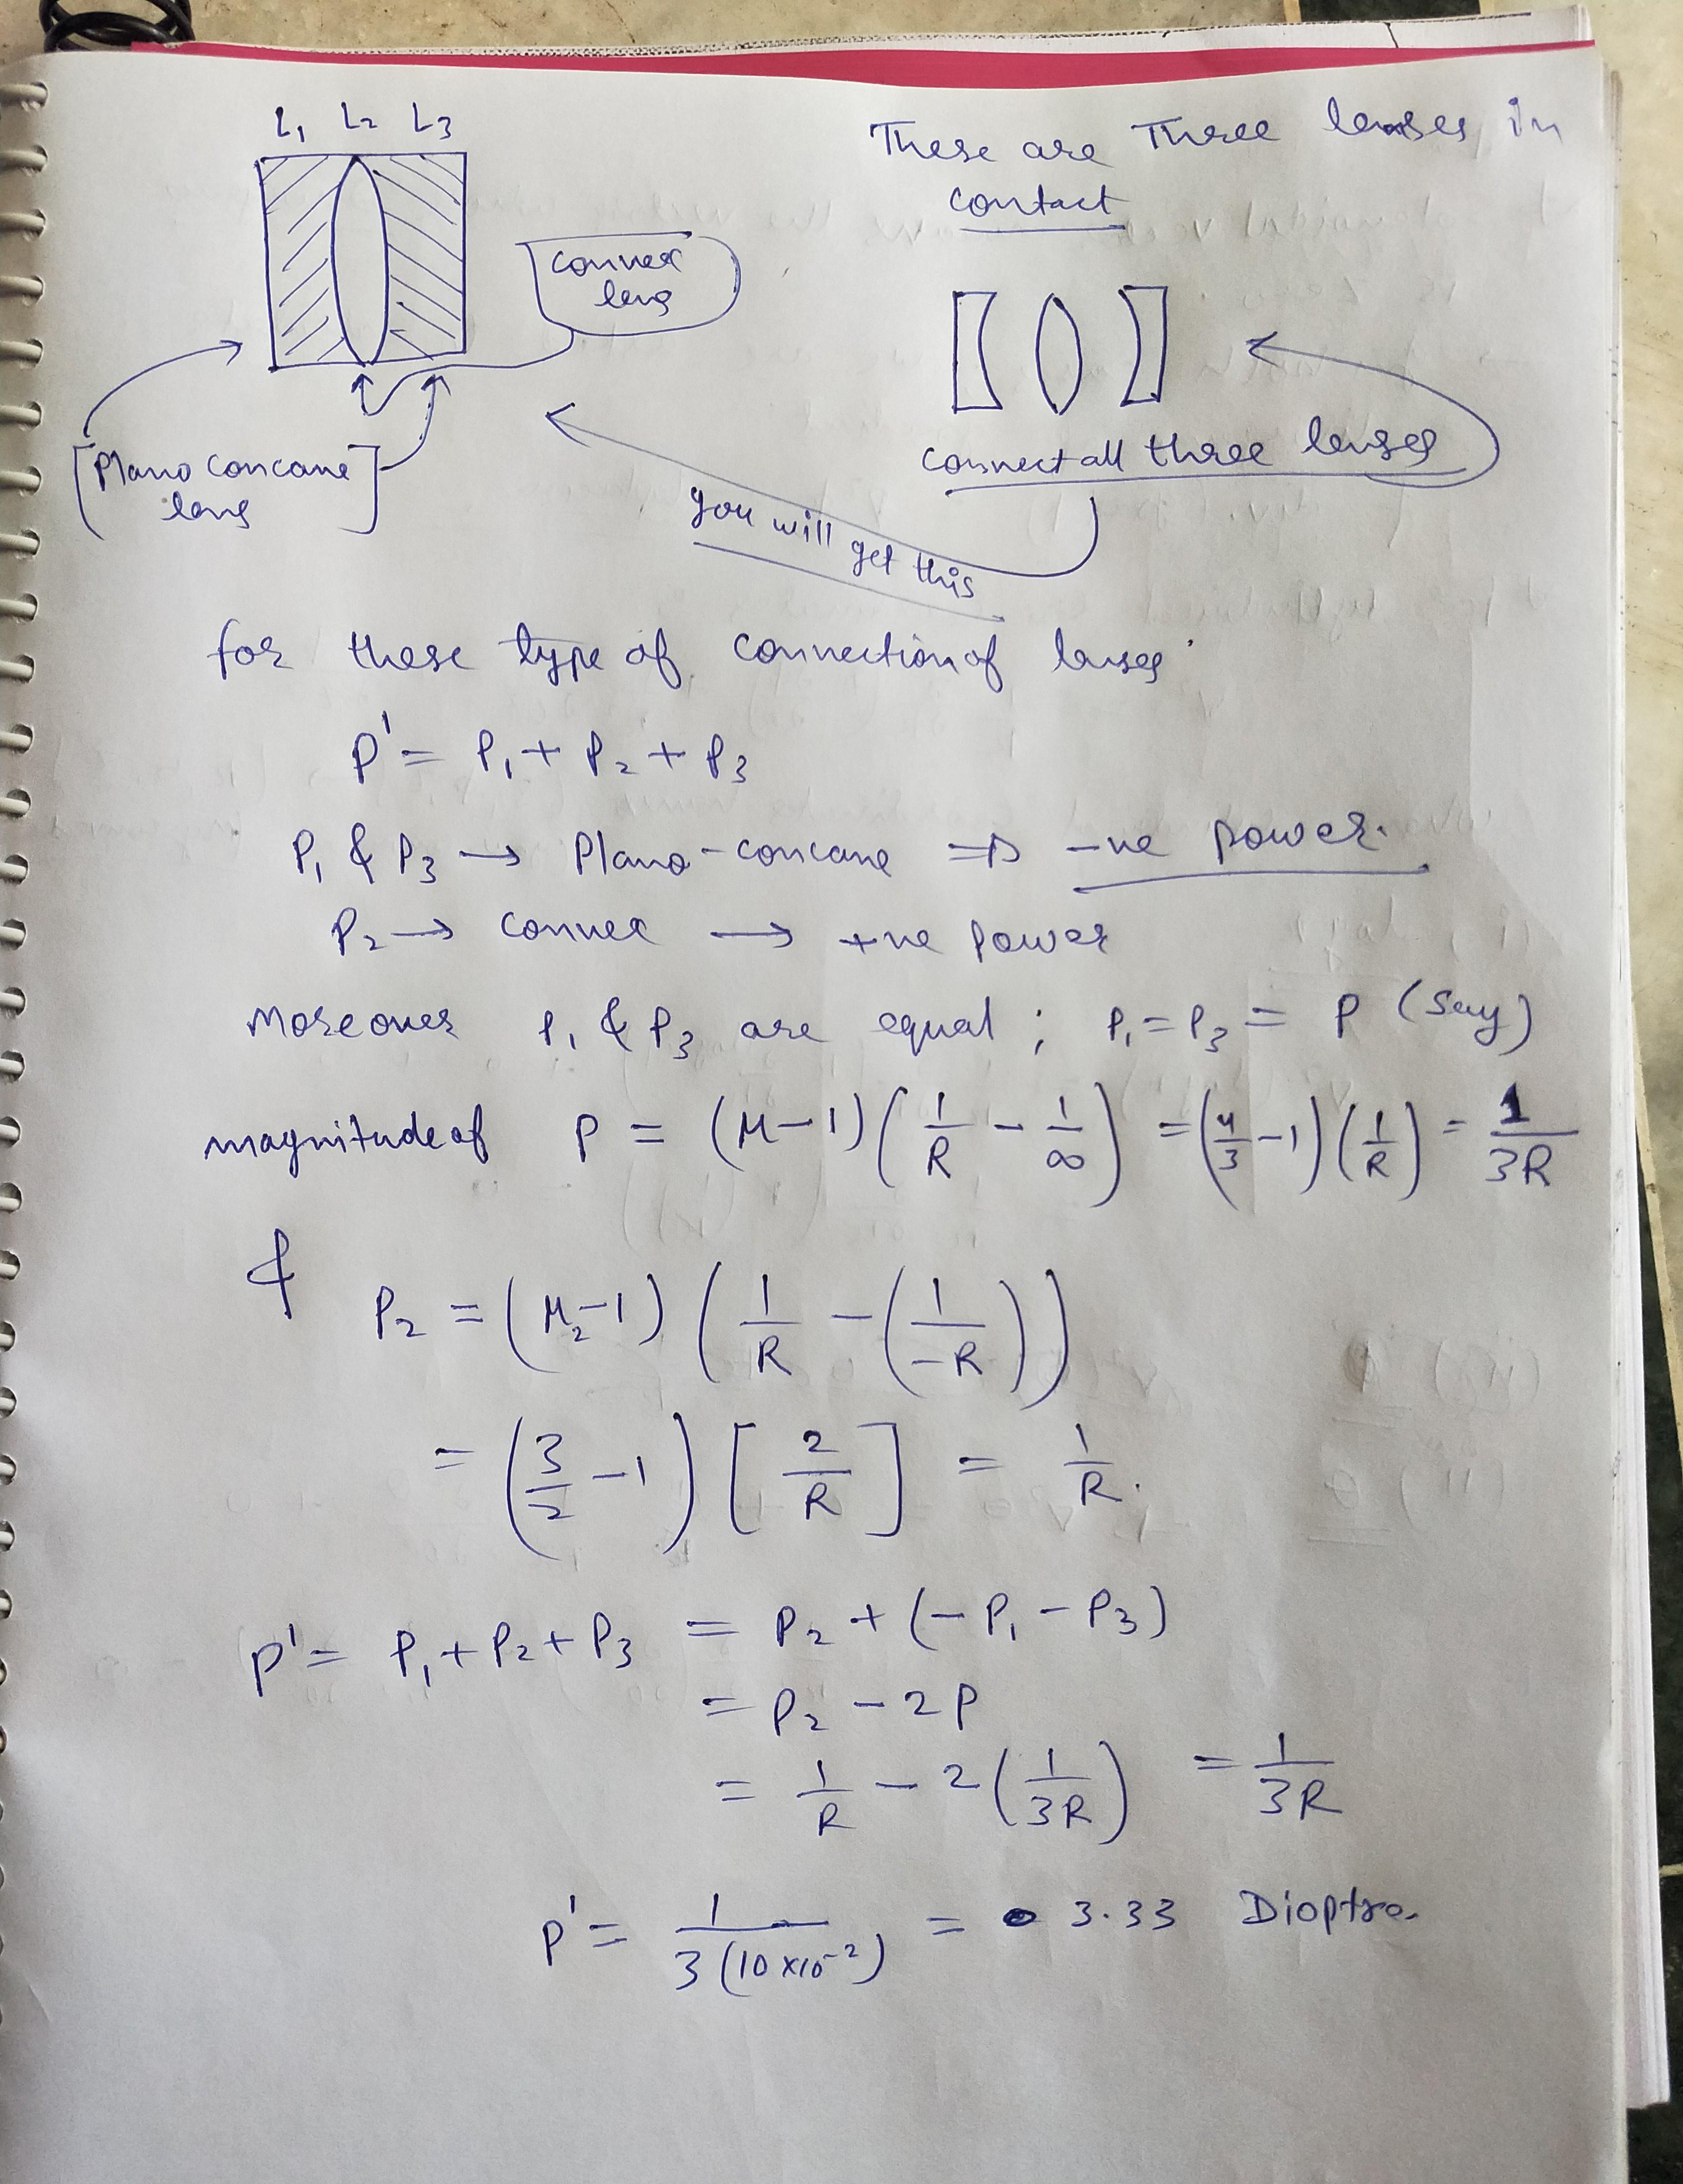 L₁ L₂ L₃
These are Three lenses in
contact
convex
lens
Plano concave
lens
connect all three lenses
you will get this
for these type of connection of lenses
P' = P₁ + P₂ + P₃
P₁ & P₃ → Plano-concave ⇒ -ve power.
P₂ → convex → +ve power
Moreover P₁ & P₃ are equal ; P₁ = P₃ = P (say)
magnitude of P = (μ-1)(1/R - 1/∞) = (4/3 - 1)(1/R) = 1/3R
& P₂ = (μ₂-1)(1/R - (1/-R))
= (3/2 - 1)[2/R] = 1/R.
P' = P₁ + P₂ + P₃ = P₂ + (-P₁ - P₃)
= P₂ - 2P
= 1/R - 2(1/3R) = 1/3R
P' = 1/3(10×10⁻²) = 3.33 Dioptre.